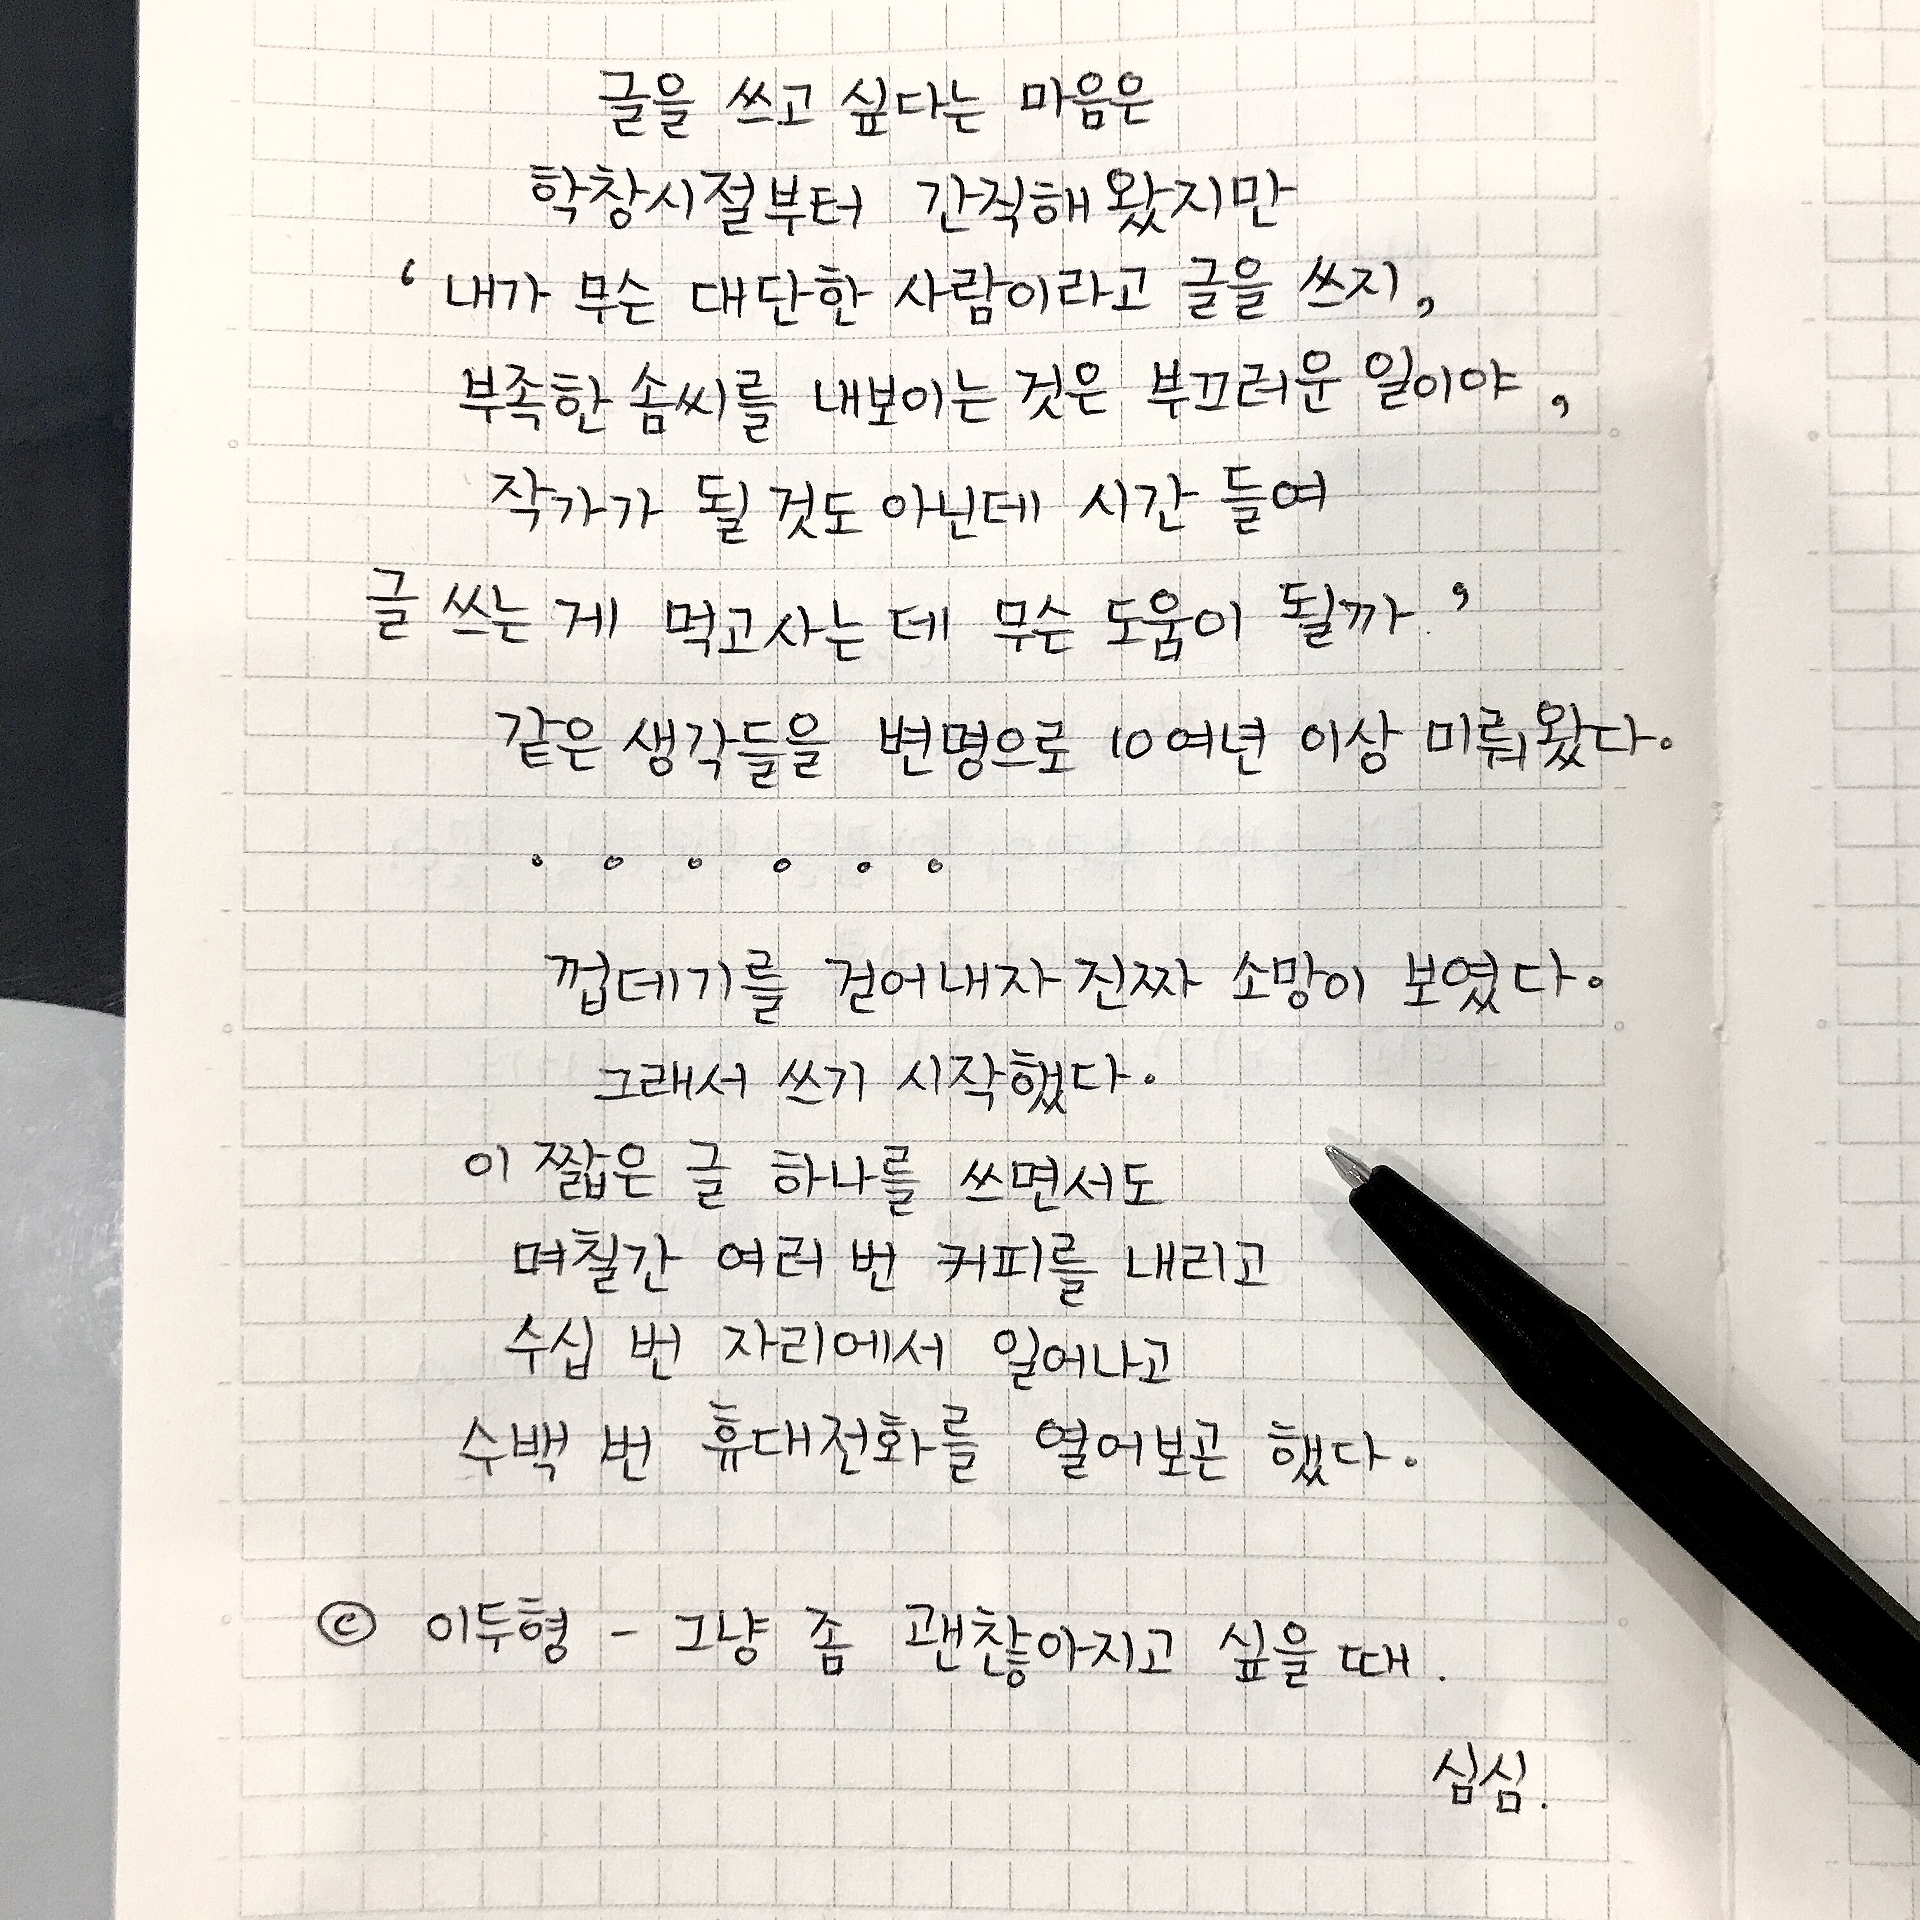 글을 쓰고 싶다는 마음은
학창시절부터 간직해 왔지만
‘내가 무슨 대단한 사람이라고 글을 쓰지,
부족한 솜씨를 내보이는 것은 부끄러운 일이야,
작가가 될 것도 아닌데 시간 들여
글 쓰는 게 먹고사는 데 무슨 도움이 될까’
같은 생각들을 변명으로 10여년 이상 미뤄왔다.
......
껍데기를 걷어내자 진짜 소망이 보였다.
그래서 쓰기 시작했다.
이 짧은 글 하나를 쓰면서도
며칠간 여러 번 커피를 내리고
수십 번 자리에서 일어나고
수백 번 휴대전화를 열어보곤 했다.
© 이두형 - 그냥 좀 괜찮아지고 싶을 때.
심심.